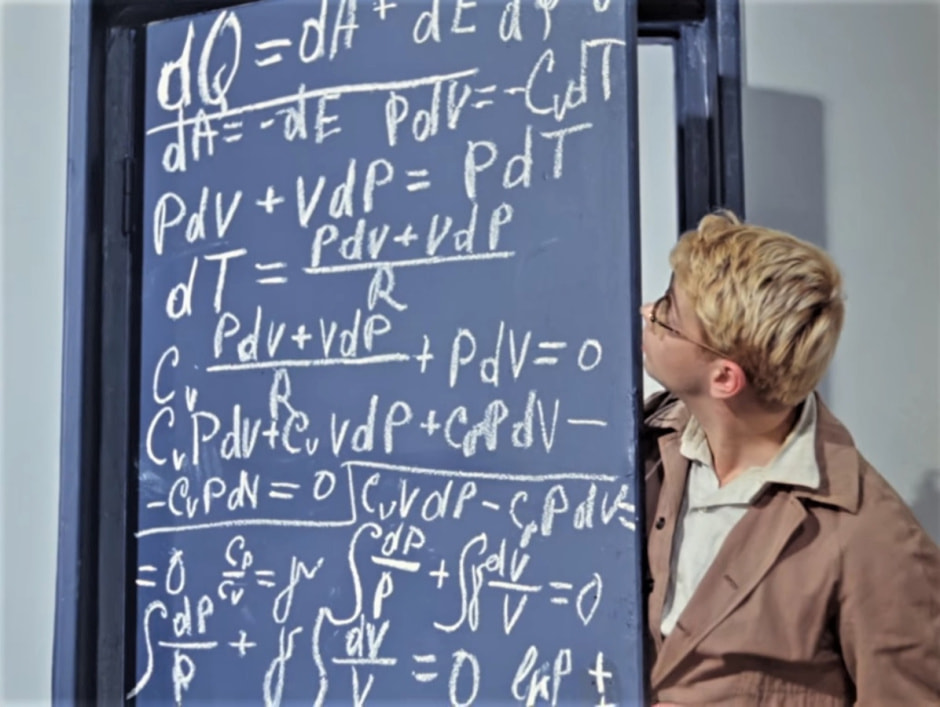 dQ = dA + dE
dA = -dE PdV = -CvdT
PdV + VdP = PdT
dT = (Pdv+VdP)/R
Cv (Pdv+vdP)/R + PdV = 0
CvPdv+CvVdP+CpPdV-
-CvPdV = 0 CvVdP-CpPdv=
=0 Cp/Cv = γ ∫dP/P + ∫γdv/V = 0
∫dP/P + γ∫dv/V = 0 lnP ±